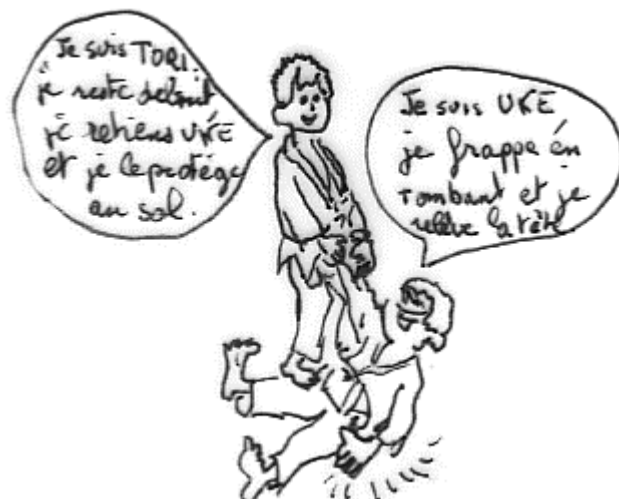 Je suis TORI.
je reste debout
je retiens UKE
et je le protège
au sol.
Je suis UKE
je frappe én
tombant et je
relève la tête